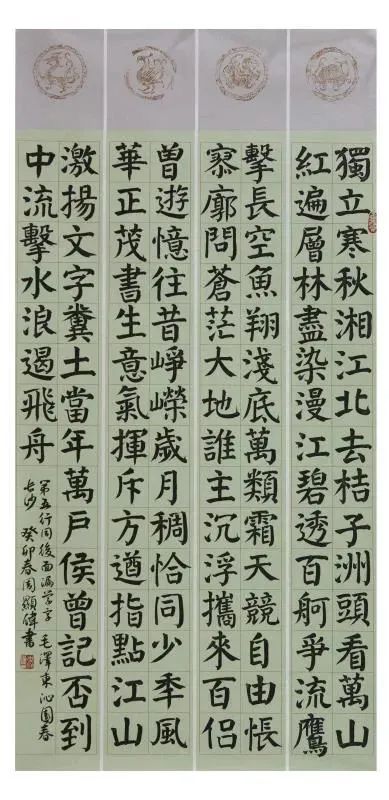 獨立寒秋湘江北去桔子洲頭看萬山
紅遍層林盡染漫江碧透百舸爭流鷹
擊長空魚翔淺底萬類霜天競自由悵
寥廓問蒼茫大地誰主沉浮攜來百侶
曾遊憶往昔崢嶸歲月稠恰同少秊風
華正茂書生意氣揮斥方遒指點江山
激揚文字糞土當年萬戶侯曾記否到
中流擊水浪遏飛舟
第五行同後面漏学字 毛澤東沁園春
長沙 癸卯春周偉書